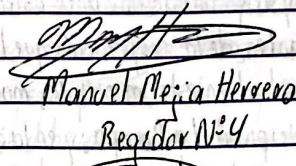 Manuel Mejia Herrera
Regidor Nº 4